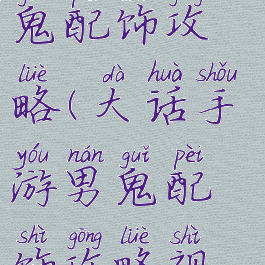 鬼配饰攻
lüè dà huà shǒu
略(大话手
yóu nán guǐ pèi
游男鬼配
shì gōng lüè shì